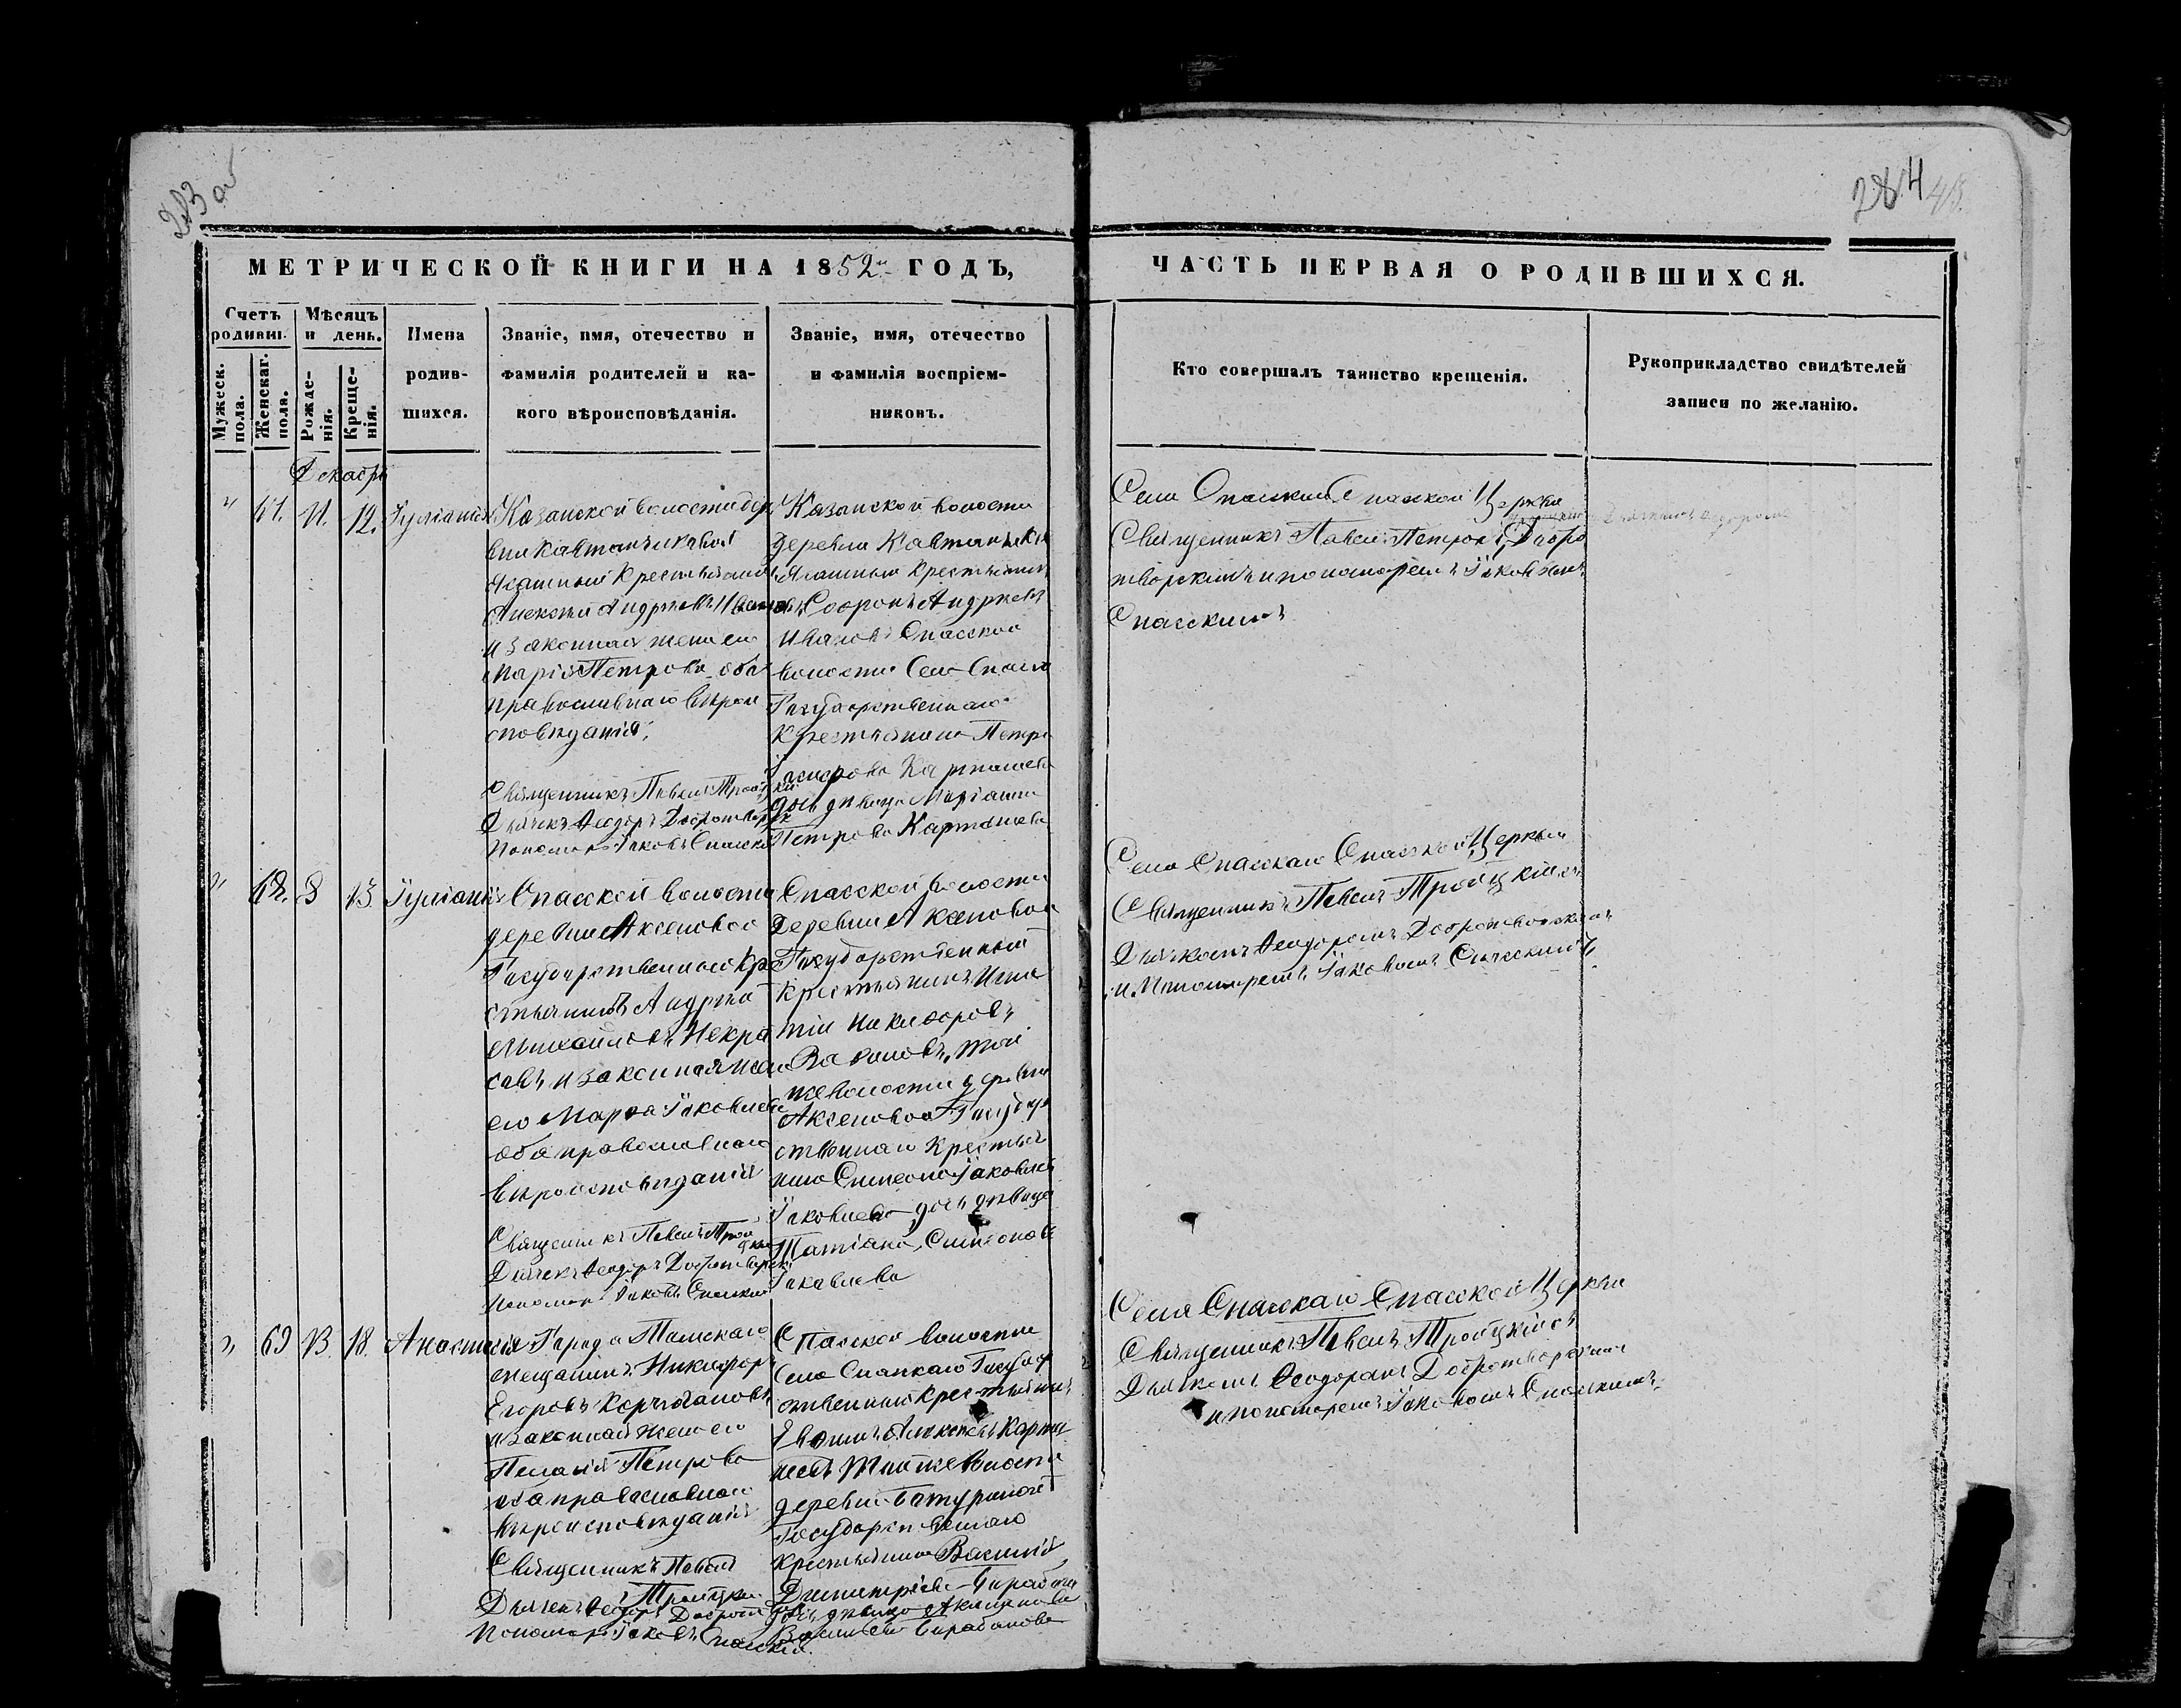 283 об
284
МЕТРИЧЕСКОЙ КНИГИ НА 1852й ГОДЪ,
ЧАСТЬ ПЕРВАЯ О РОДИВШИХСЯ.
Счетъ родивш.
Мужеск. пола.
Женскаг. пола.
Мѣсяцъ и день.
Рожденія.
Крещенія.
Имена
родив-
шихся.
Званіе, имя, отечество и
фамилія родителей и ка-
кого вѣроисповѣданія.
Званіе, имя, отечество
и фамилія воспріем-
никовъ.
Кто совершалъ таинство крещенія.
Рукоприкладство свидѣтелей
записи по желанію.
Декабрь
" 61. 11. 12. Іуліанія
Казанской волости дер
вни Кавтанчиковой
Ясашный Крестьянинъ
Алексѣй Андреевъ Ивановъ
и законная жена его
Марія Петрова оба
православнаго вѣрои
сповѣданія.
Священникъ Павелъ Троицкій
Дьячекъ Ѳеодоръ Добротворск
Пономарь Іаковъ Спасск
Казанской волости
деревни Кавтанчики
Ясашный Крестьянинъ
Софронъ Андреевъ
Ивановъ Спасской
волости Села Спаска
Государственнаго
Крестьянина Петра
Карташева
дочь дѣвица
Петрова Карташева
Села Спаскаго Спаской Церкви
Священникъ Павелъ Петровъ Добро
творскимъ и пономаремъ Іаковомъ
Спасскимъ
" 62. 8 13 Іуліанія
Спасской волости
деревни Аксеновой
Государственный Кре
стьянинъ Андрей
Михайловъ Некра
совъ и законная жена
его Марѳа Іаковлева
оба православнаго
вѣроисповѣданія
Священникъ Павелъ Трои
цкій
Дьячекъ Ѳеодоръ Добротворск
Пономарь Іаковъ Спаский
Спасской волости
Деревни Аксеновой
Государственный
Крестьянинъ Игна
тій Никифоровъ
Вавиловъ, той
же волости деревни
Аксеновой Государ
ственнаго Крестья
нина Симеона Іаковлева
Іаковлева дочь дѣвица
Татіана Симеонова
Іаковлева
Села Спасскаго Спасской Церкви
Священникъ Павелъ Троицкій съ
Дьячкомъ Ѳеодоромъ Добротворскимъ
и Пономаремъ Іаковомъ Спасскимъ
" 63 13. 18. Анастасія
Города Томскаго
мещанинъ Никифоръ
Егоровъ Корчагановъ
и законная жена его
Пелагія Петрова
оба православнаго
вѣроисповѣданія
Священникъ Павелъ
Троицкій
Дьячекъ Ѳеодоръ Доброт
Пономарь Іаковъ Спаскій.
Спаской волости
Села Спаскаго Государ
ственный Крестьянинъ
Алексѣевъ Карта
шевъ той же волости
деревни Батуриной
Государственнаго
Крестьянина Василія
Димитріева Барабано
дочь дѣвица Акилина
Васильева Барабанова
Села Спасскаго Спасской Церкви
Священникъ Павелъ Троицкій съ
Дьячкомъ Ѳеодоромъ Добротворскимъ
и пономаремъ Іаковомъ Спасскимъ.